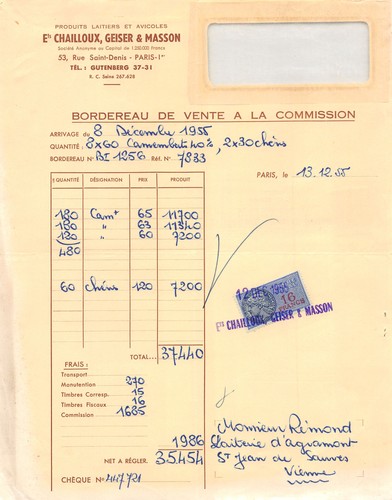 PRODUITS LAITIERS ET AVICOLES
Ets CHAILLOUX, GEISER & MASSON
Société Anonyme au Capital de 1.250.000 Francs
53, Rue Saint-Denis - PARIS-1er
TÉL. : GUTENBERG 37-31
R. C. Seine 267.628
BORDEREAU DE VENTE A LA COMMISSION
ARRIVAGE du 8 Décembre 1955
QUANTITÉ : 8x60 Camembert 40%, 2x30 chèvs
BORDEREAU N° BI 1256 Réf. N° 7833
PARIS, le 13.12.55
QUANTITÉ DÉSIGNATION PRIX PRODUIT
180 Camt 65 11700
180 " 63 11340
120 " 60 7200
480
60 chèvs 120 7200
12 DEC 1955
16
FRANCS
Ets CHAILLOUX, GEISER & MASSON
TOTAL... 37440
FRAIS :
Transport
Manutention 270
Timbres Corresp. 15
Timbres Fiscaux 16
Commission 1685
1986
NET A RÉGLER. 35454
CHÈQUE N°
Monsieur Rémond
Laiterie d'agramont
St Jean de Sauves
Vienne